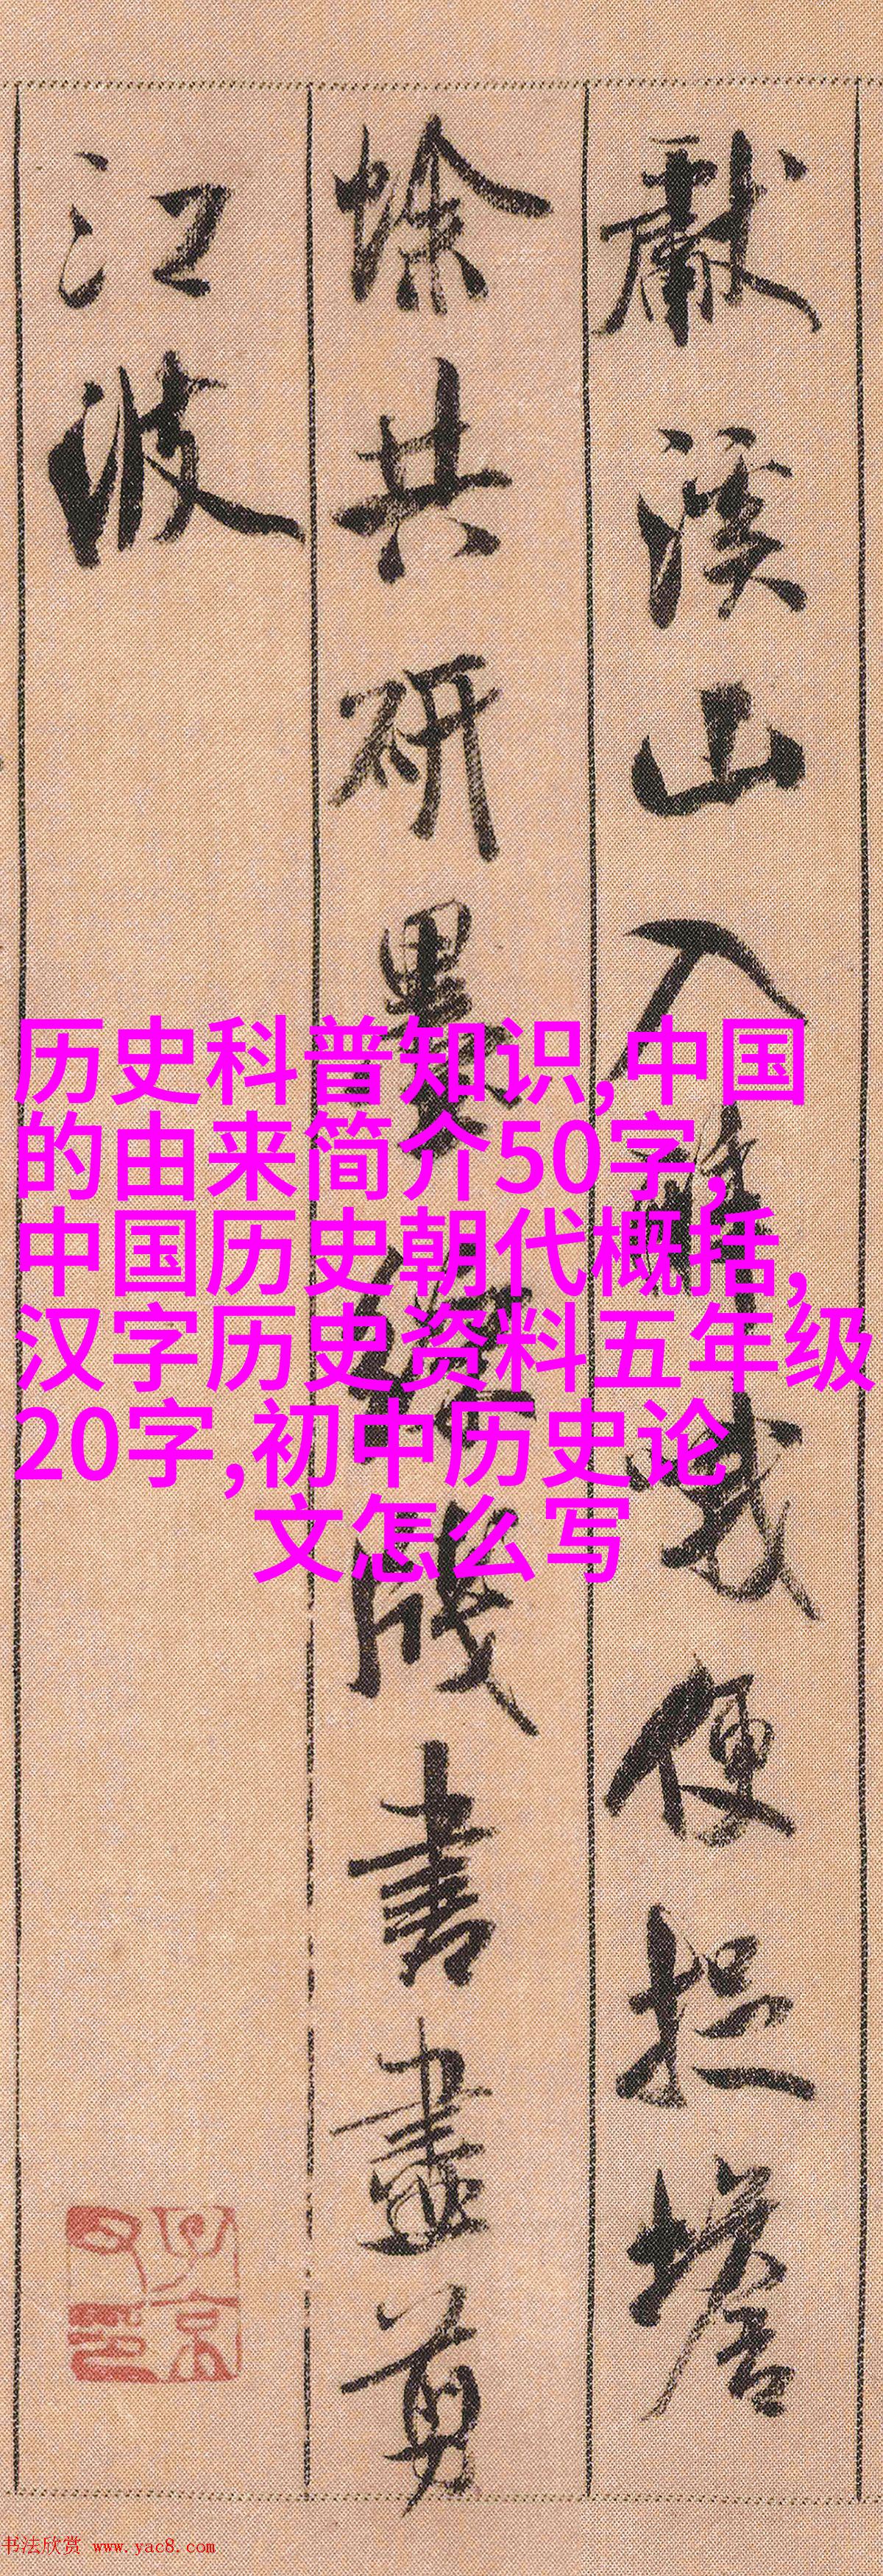 獻溪山入
便捉蟾
蜍共研墨
牋書盡剪
江波
历史科普知识,中国
的由来简介50字,
中国历史朝代概括,
汉字历史资料五年级
20字,初中历史论
文怎么写
书法欣赏 www.yac8.com